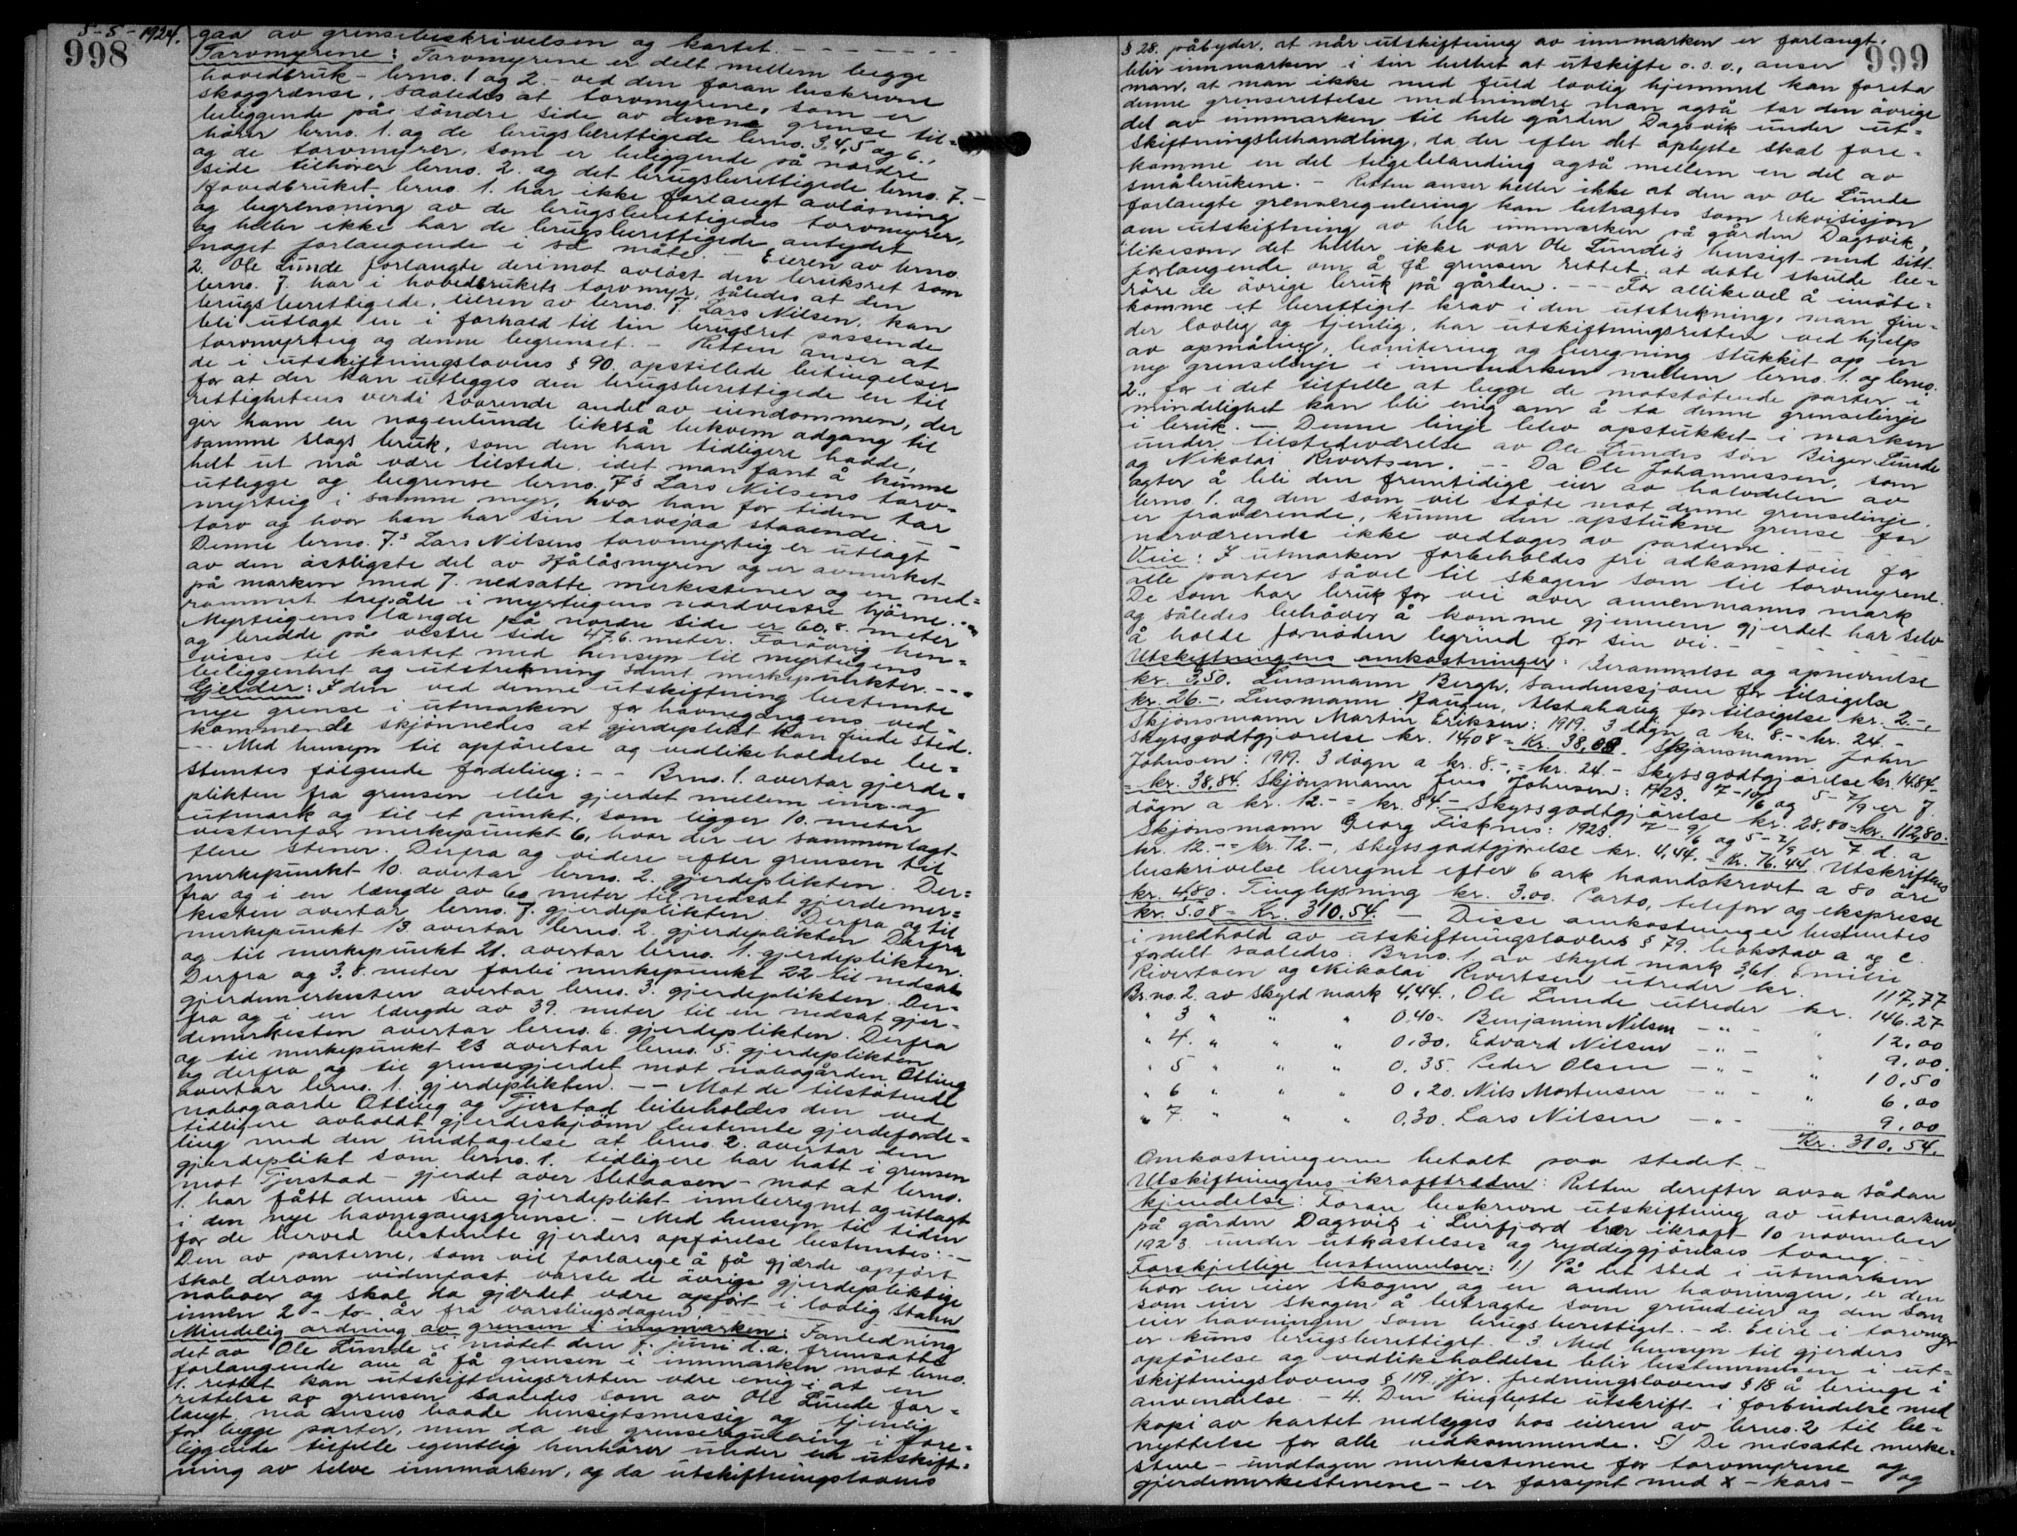 5-5-1924.
998
gaa av grensebeskrivelsen og kartet. - - - - - - -
Torvmyrene: Torvmyrene er delt mellem begge
hovedbruk - brno. 1 og 2. - ved den foran beskrevne
skoggrænse, saaledes at torvmyrene, som er
beliggende på söndre side av denne grense til-
hører brno. 1. og de brugsberettigede brno. 3, 4, 5 og 6.,
og de torvmyrer, som er beliggende på nordre
side tilhører brno. 2. og det brugsberettigede brno. 7. -
Hovedbruket brno. 1. har ikke forlangt avløsning
og begrensning av de brugsberettigedes torvmyrer,
og heller ikke har de brugsberettigede antydet
noget forlangende i så måte. - Eieren av brno.
2. Ole Lunde forlangte derimot avløst den bruksret som
brno. 7. har i hovedbrukets torvmyr, således at den
brugsberettigede, eieren av brno. 7. Lars Nilsen, kan
bli utlagt en i forhold til sin brugsret passende
torvmyrteig og denne begrenset. - Retten anser at
de i utskiftningslovens § 90. opstillede betingelser
for at der kan utlegges den brugsberettigede en til
rettighetens verdi svarende andel av eiendommen, der
gir ham en nogenlunde likeså bekvem adgang til
samme slags bruk, som den han tidligere hadde,
helt ut må være tilstede, idet man fant å kunne
utlegge og begrense brno. 7's Lars Nilsens torv-
myrteig i samme myr, hvor han for tiden tar
torv og hvor han har sin torvgjaa staaende. - -
Denne brno. 7.s Lars Nilsens torvmyrteig er utlagt
av den östligste del av Hålåsmyren og er avmerket
på marken med 7. nedsatte merkestener og en ned-
rammet trepåle i myrteigens nordvestre hjörne. - -
Myrteigens længde på nordre side er 60.8. meter
og bredde på vestre side 47.6. meter. Forövrig hen-
vises til kartet med hensyn til myrteigens
beliggenhet og utstrekning samt merkepunkter. - - -
Gjerder: I den ved denne utskiftning bestemte
nye grense i utmarken for havnegangens ved-
kommende skjönnedes at gjerdeplikt kan finde sted.
- - - Med hensyn til opförelse og vedlikeholdelse be-
stemtes følgende fordeling: - - Brno. 1. overtar gjerde-
plikten fra grensen eller gjerdet mellem inn- og
utmark og til et punkt, som ligger 10. meter
vestenfor merkepunkt 6, hvor der er sammenlagt
flere stener. Derfra og videre efter grensen til
merkepunkt 10. overtar brno. 2. gjerdeplikten. Der-
fra og i en længde av 60 meter til nedsat gjerdemer-
kesten overtar brno. 7. gjerdeplikten. Derfra og til
merkepunkt 13 overtar brno. 2. gjerdeplikten Derfra
og til merkepunkt 21. overtar brno. 1. gjerdeplikten.
Derfra og 3.8. meter forbi merkepunkt 22 til nedsat
gjerdemerkesten overtar brno. 3. gjerdeplikten. Der-
fra og i en længde av 39. meter til en nedsat gjer-
demerkesten overtar brno. 6. gjerdeplikten. Derfra
og til merkepunkt 23 overtar brno. 5. gjerdeplikten
og derfra og til grensegjerdet mot nabogården Otting
overtar brno. 1. gjerdeplikten. - - Mot de tilstøtende
nabogaarde Otting og Tjerstad beibeholdes den ved
tidligere avholdt gjerdeskjönn bestemte gjerdeforde-
ling med den undtagelse at brno. 2. overtar den
gjerdeplikt som brno. 1. tidligere har hatt i grensen
mot Tjerstad - gjerdet over Sletaasen - mot at brno.
1. har fått denne sin gjerdeplikt innberegnet og utlagt
i den nye havnegangsgrense. - Med hensyn til tiden
for de herved bestemte gjerders opførelse bestemtes: - -
Den av parterne, som vil forlange å få gjærde opført
skal derom vidnefast varsle de övrige gjerdepliktige
naboer og skal da gjærdet være opført i lovlig stand
innen 2 - to - år fra varslingsdagen
Mindelig ordning av grensen i innmarken: Fanledning
det av Ole Lunde i mötet den 7. juni d.a. fremsatte
forlangende om å få grensen i innmarken mot brno.
1. rettet kan utskiftningsretten være enig i at en
rettelse av grensen saaledes som av Ole Lunde for-
langt må ansees baade hensigtsmessig og tjenlig
for begge parter, men da en grenseregulering i fore-
liggende tilfelle egentlig henhører under en utskift-
ning av selve innmarken, og da utskiftningslovens
999
§ 28. påbyder, at når utskiftning av innmarken er forlangt,
blir innmarken i sin helhet at utskifte o.s.v., anser
man, at man ikke med fuld lovlig hjemmel kan foreta
denne grenserettelse medmindre man også tar den övrige
del av innmarken til hele gården Dagsvik under ut-
skiftningsbehandling, da der efter det oplyste skal fore-
komme en del teigeblanding også mellem en del av
småbrukene. - Retten anser heller ikke at den av Ole Lunde
forlangte grenseregulering kan betragtes som rekvisisjon
om utskiftning av hele innmarken på gården Dagsvik,
likesom det heller ikke var Ole Lunde's hensigt med sitt
forlangende om å få grensen rettet, at dette skulde be-
röre de övrige bruk på gården. - - For allikevel å imöte-
komme et berettiget krav i den utstrekning, man fin-
der lovlig og tjenlig, har utskiftningsretten ved hjelp
av opmåling, bonitering og beregning stukket op en
ny grenselinje i innmarken mellem brno. 1. og brno.
2., for i det tilfelle at begge de motstötende parter i
mindelighet kan bli enig om å ta denne grenselinje
i bruk. - Denne linje blev opstukket i marken
under tilstedeværelse av Ole Lundes sön Birger Lunde
og Nikolai Rivertsen. - - Da Ole Johannessen, som
agter å bli den fremtidige eier av halvdelen av
brno. 1. og den som vil stöte mot denne grenselinje.
er fraværende, kunne den opstukne grense for
nærværende ikke vedtages av parterne.
Veie: I utmarken forbeholdes fri adkomstvei for
alle parter såvel til skogen som til torvmyrene.
De som har bruk for vei over annenmanns mark
og således behöver å komme gjennem gjerdet har selv
å holde fornöden legrind for sin vei. - - - -
Utskiftningens omkostninger: Berammelse og opnevnelse
kr. 3,50. Lensmann Bergh, Sandnessjöen for tilsigelse
kr. 26. -, Lensmann Paulsen, Alstahaug for tilsigelse kr. 2. -,
Skjönsmann Martin Eriksen: 1919. 3 dögn a kr. 8. - = kr. 24. -
Skyssgodtgjörelse kr. 14,08 = Kr. 38,08. Skjönsmann John
Johnsen: 1919. 3 dögn a kr. 8. -, = kr. 24. - Skyssgodtgjörelse kr. 14.84 -
= kr. 38,84. Skjönsmann Jens Johnsen: 1923. 7-10/6 og 5-7/9 er 7.
dögn a kr. 12. - = kr. 84. - Skyssgodtgjörelse kr. 28,80 = Kr. 112,80.
Skjönsmann Georg Fisknes: 1923. 7-9/6 og 5-7/9 er 7 d. a
kr. 12. - = kr. 72. -, skyssgodtgjörelse kr. 4,44. = Kr. 76.44. Utskriftens
beskrivelse beregnet efter 6 ark haandskrevet a 80 öre
kr. 4,80. Tinglysning kr. 3.00. Porto, telefon og ekspresse
kr. 5.08 = Kr. 310.54. - Disse omkostninger bestemtes
i medhold av utskiftningslovens § 79. bokstav a og c.
fordelt saaledes: Brno. 1. av skyld mark 3,61. Emilie
Rivertsen og Nikolai Rivertsen utreder kr. 117,77
Br.no. 2. av skyld mark 4,44., Ole Lunde utreder kr. 146.27
" 3 " " " 0.40. Benjamin Nilsen - " - " 12,00
" 4. " " " 0.30. Edvard Nilsen - " - " 9,00.
" 5 " " " 0.35. Peder Olsen - " - " 10,50
" 6 " " " 0.20. Nils Mortensen - " - " 6,00
" 7. " " " 0.30. Lars Nilsen - " - " 9,00
Kr. 310,54.
Omkostningerne betalt paa stedet -
Utskiftningens ikrafttræden: Retten derefter avsa sådan
kjendelse: Foran beskrevne utskiftning av utmarken
på gården Dagsvik i Leirfjord trær ikraft 10 november
1923. under utkastelses og ryddiggjörelses tvang. -
Forskjellige bestemmelser: 1) På det sted i utmarken
hvor en eier skogen og en anden havningen, er den
som eier skogen å betragte som grundeier og den som
eier havningen som brugsberettiget. - 2. Eiere i torvmyr
er kuns brugsberettiget. - 3 Med hensyn til gjerders
opförelse og vedlikeholdelse blir bestemmelsen i ut-
skiftningslovens § 119, jfr. fredningslovens § 18 å bringe i
anvendelse. - 4. Den tinglæste utskrift i forbindelse med
kopi av kartet nedlægges hos eieren av brno. 2 til be-
nyttelse for alle vedkommende. 5) De nedsatte merke-
stene - undtagen merkestenene for torvmyrene og
gjerdemerkestenene - er forsynt med x - kors - og